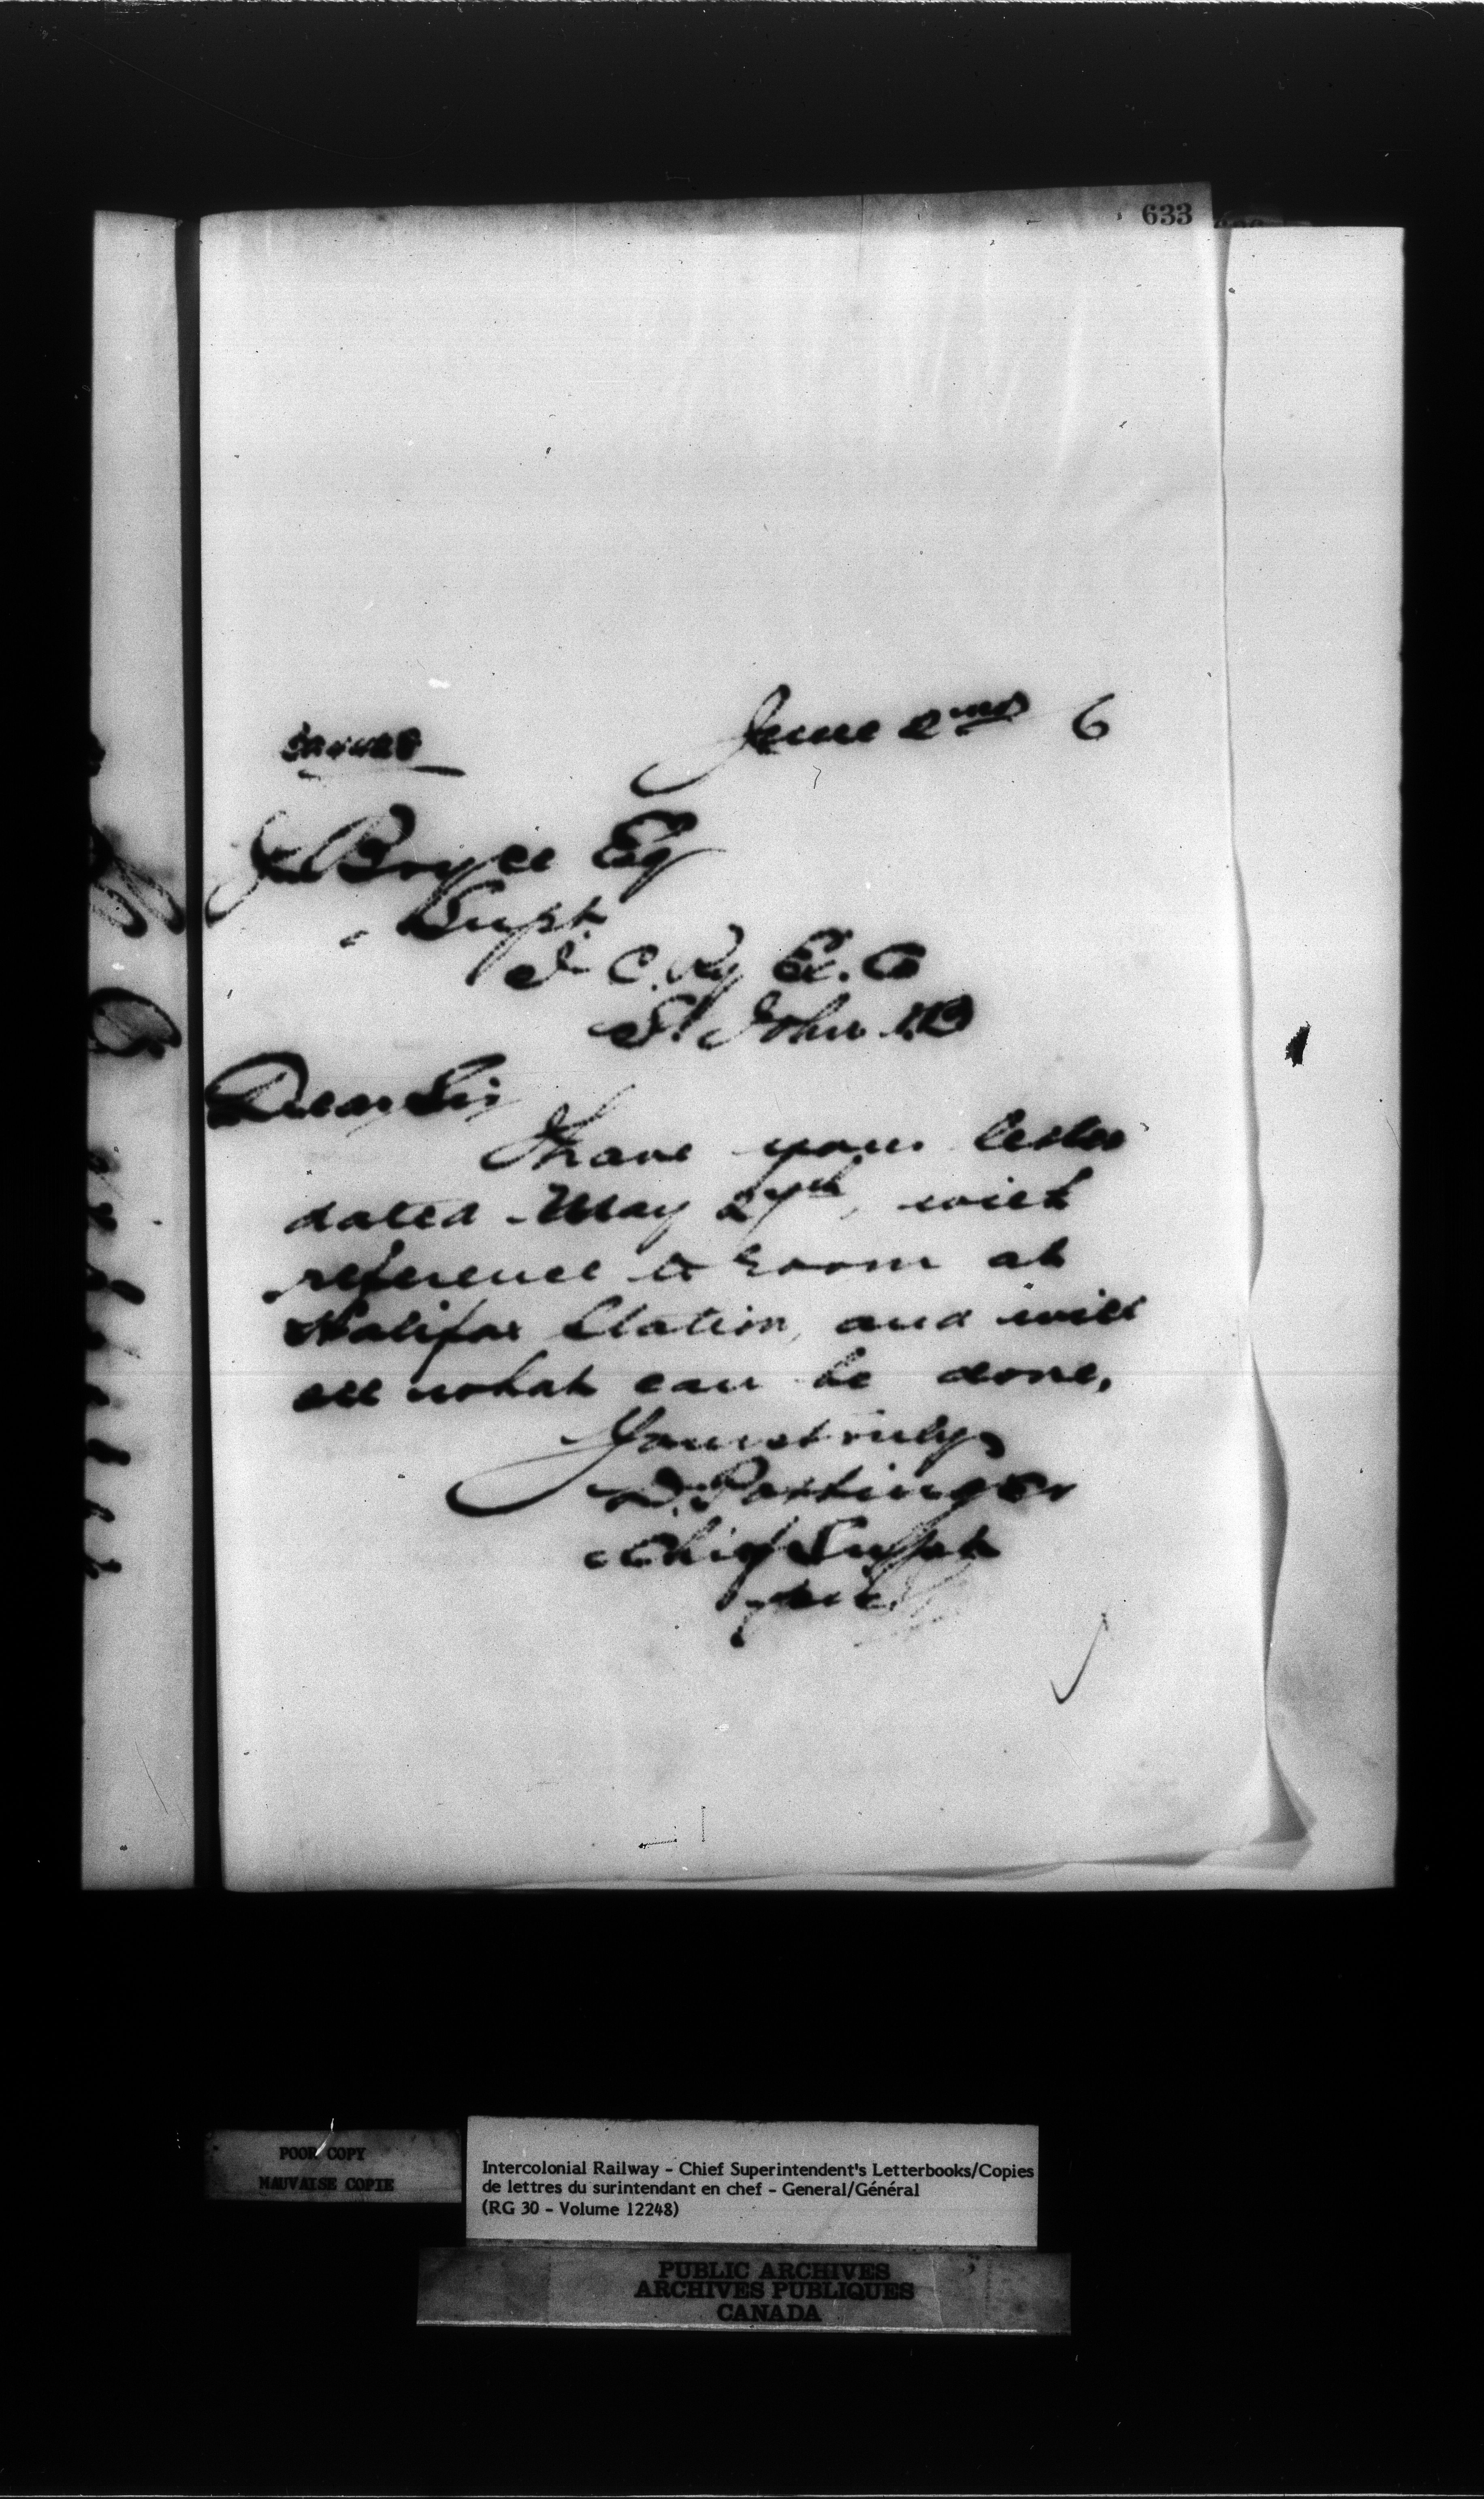 633
June 2nd 6
J. Bryce Esq
Supt
I. C. Ry Ex. Co
St John N.B
Dear Sir
I have your letter
dated May 27th, with
reference to room at
Halifax Station, and will
see what can be done.
Yours truly
D. Pottinger
Chief Supt
POOR COPY
MAUVAISE COPIE
Intercolonial Railway - Chief Superintendent's Letterbooks/Copies
de lettres du surintendant en chef - General/Général
(RG 30 - Volume 12248)
PUBLIC ARCHIVES
ARCHIVES PUBLIQUES
CANADA